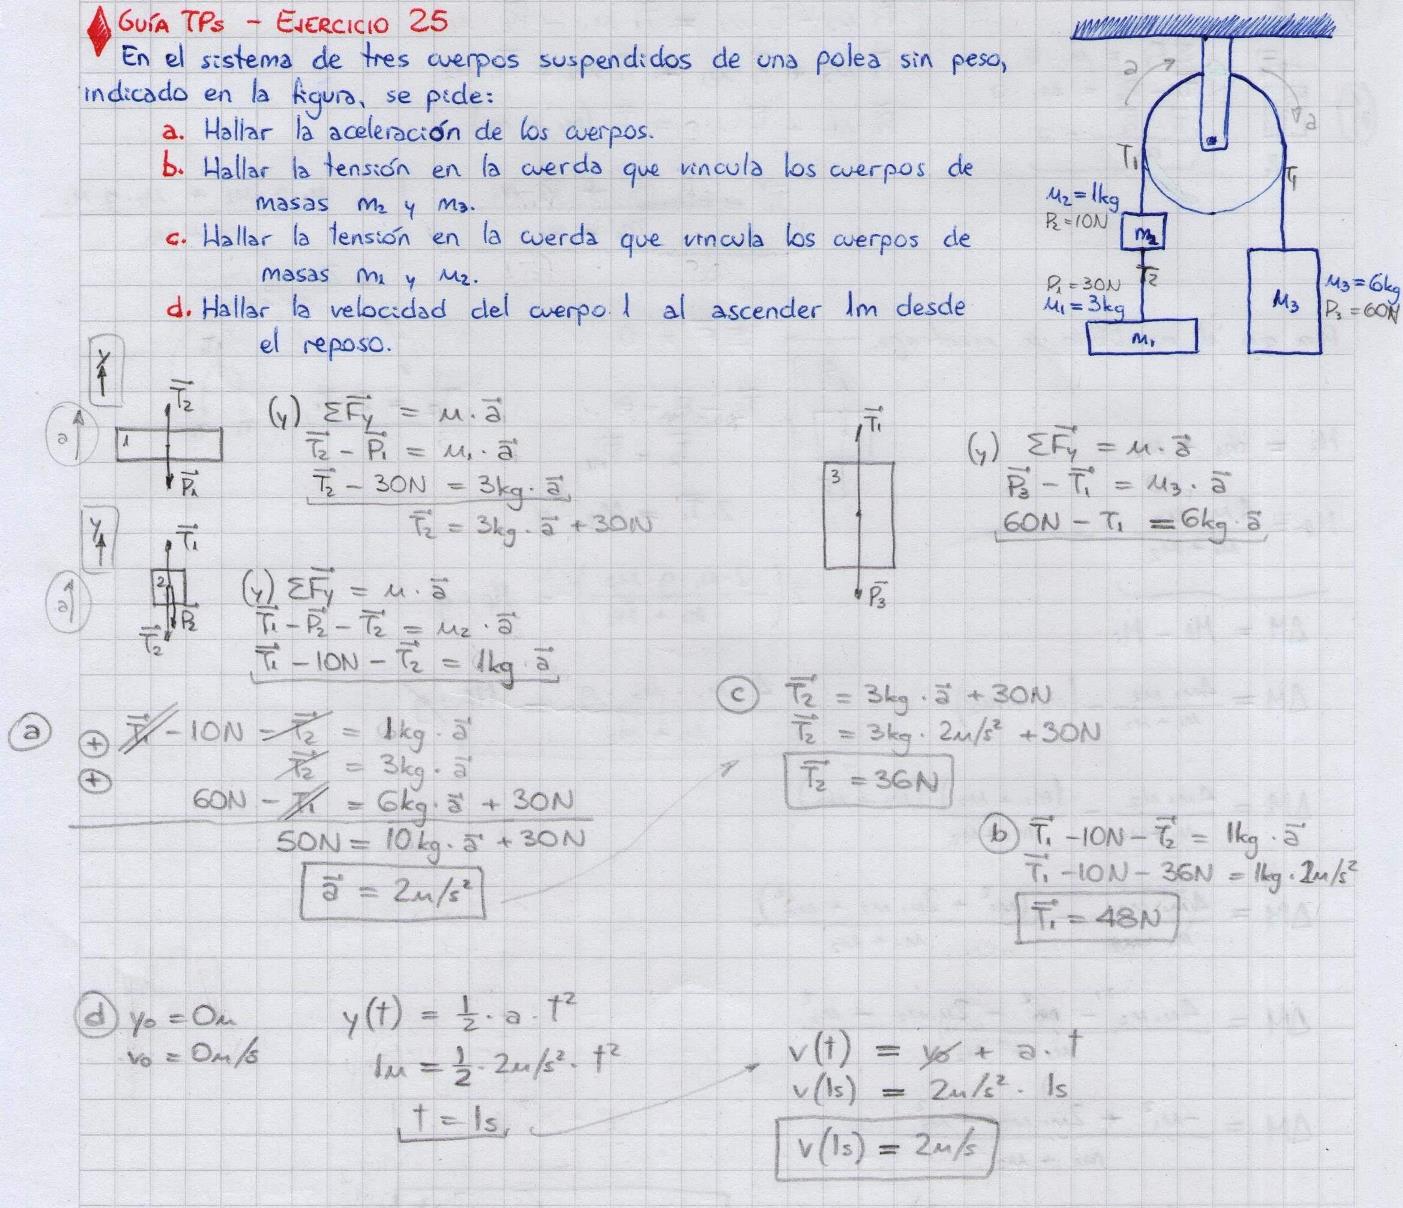 GUÍA TPs - EJERCICIO 25
En el sistema de tres cuerpos suspendidos de una polea sin peso,
indicado en la figura, se pide:
a. Hallar la aceleración de los cuerpos.
b. Hallar la tensión en la cuerda que vincula los cuerpos de
masas m₂ y m₃.
c. Hallar la tensión en la cuerda que vincula los cuerpos de
masas m₁ y m₂.
d. Hallar la velocidad del cuerpo 1 al ascender 1m desde
el reposo.
a
a
T₁
T₁
m₂ = 1kg
P₂ = 10N
m₂
T₂
P₁ = 30N
m₁ = 3kg
m₁
m₃
m₃ = 6kg
P₃ = 60N
y
a
T⃗₂
1
P⃗₁
(y) ΣF⃗y = m · a⃗
T⃗₂ - P⃗₁ = m₁ · a⃗
T⃗₂ - 30N = 3kg · a⃗
T⃗₂ = 3kg · a⃗ + 30N
T⃗₁
3
P⃗₃
(y) ΣF⃗y = m · a⃗
P⃗₃ - T⃗₁ = m₃ · a⃗
60N - T₁ = 6kg · a⃗
y
a
T⃗₁
2
P⃗₂
T⃗₂
(y) ΣF⃗y = m · a⃗
T⃗₁ - P⃗₂ - T⃗₂ = m₂ · a⃗
T⃗₁ - 10N - T⃗₂ = 1kg · a⃗
a
+ T⃗₁ - 10N - T⃗₂ = 1kg · a⃗
+ T⃗₂ = 3kg · a⃗
60N - T⃗₁ = 6kg · a⃗ + 30N
50N = 10kg · a⃗ + 30N
a⃗ = 2m/s²
c T⃗₂ = 3kg · a⃗ + 30N
T⃗₂ = 3kg · 2m/s² + 30N
T⃗₂ = 36N
b T⃗₁ - 10N - T⃗₂ = 1kg · a⃗
T⃗₁ - 10N - 36N = 1kg · 2m/s²
T⃗₁ = 48N
d y₀ = 0m
v₀ = 0m/s
y(t) = 1/2 · a · t²
1m = 1/2 · 2m/s² · t²
t = 1s
v(t) = v₀ + a · t
v(1s) = 2m/s² · 1s
v(1s) = 2m/s